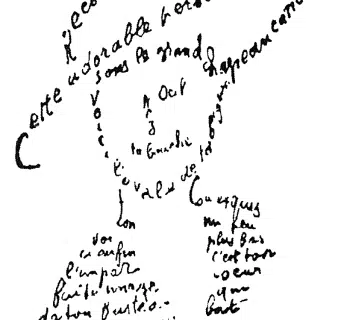 Reco
Cette adorable perso
sous le grand chapeau canotie
Oeil
Nez
la bouche
Voici l'ovale de ta figure
Ton
Cou exquis
Voi
ci enfin
l'impar
faite image
de ton buste
un peu
plus bas
c'est ton
coeur
qui
bat